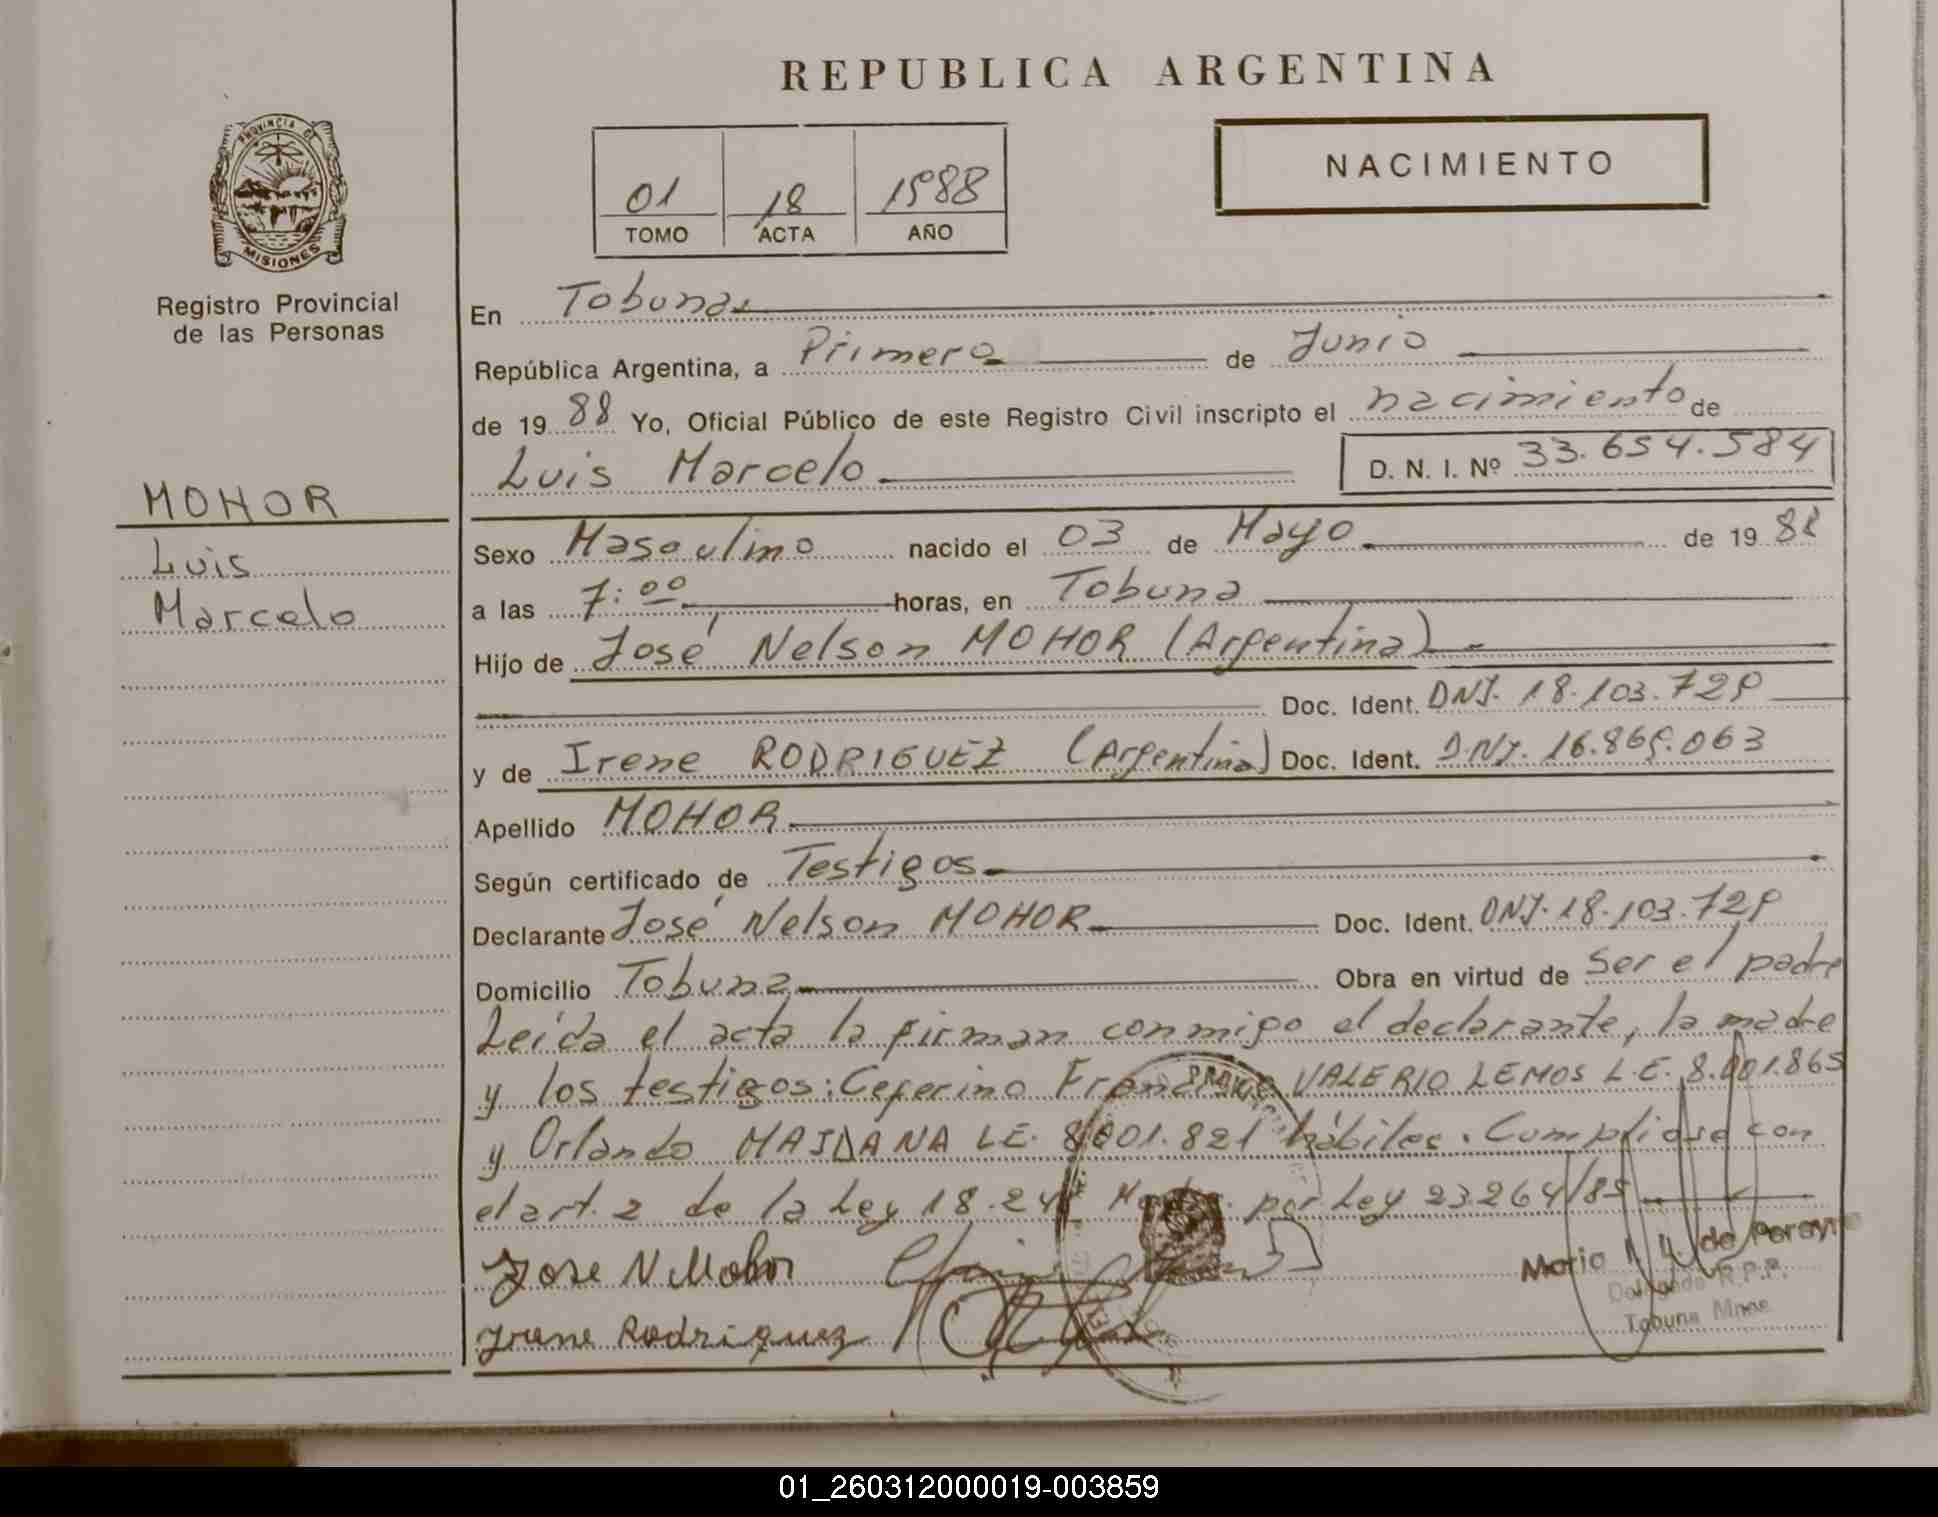 REPUBLICA ARGENTINA
PROVINCIA DE
MISIONES
Registro Provincial
de las Personas
01 18 1988
TOMO ACTA AÑO
NACIMIENTO
MOHOR
Luis
Marcelo
En Tobuna
República Argentina, a Primero de Junio
de 19 88 Yo, Oficial Público de este Registro Civil inscripto el nacimiento de
Luis Marcelo D. N. I. Nº 33.654.584
Sexo Masculino nacido el 03 de Mayo de 19 88
a las 7:00 horas, en Tobuna
Hijo de José Nelson MOHOR (Argentina)
Doc. Ident. DNI. 18.103.729
y de Irene RODRIGUEZ (Argentina) Doc. Ident. DNI. 16.869.063
Apellido MOHOR
Según certificado de Testigos
Declarante José Nelson MOHOR Doc. Ident. DNI. 18.103.729
Domicilio Tobuna Obra en virtud de Ser el padre
Leída el acta la firman conmigo el declarante, la madre
y los testigos: Ceferino VALERIO LEMOS L.E. 8.001.865
y Orlando MAIDANA LE. 8.001.821 hábiles. Cumpliose con
el art. 2 de la Ley por Ley 23.264/85
Jose N Mohor
Irene Rodriguez
de Pereyra
Delegado R.P.P.
Tobuna Mnes.
01_260312000019-003859